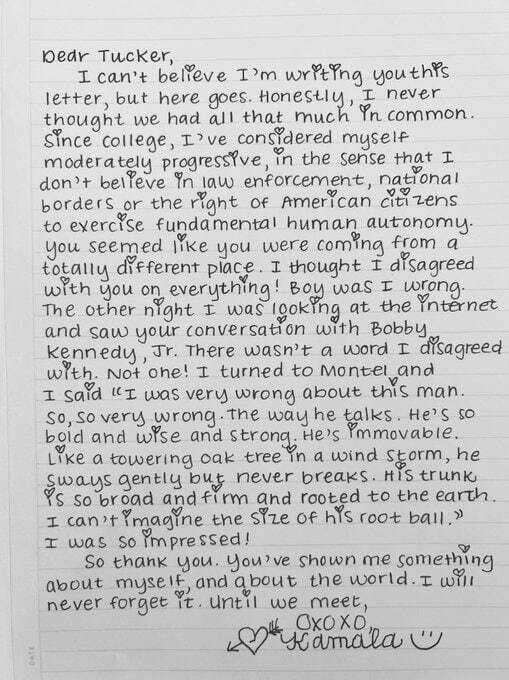 Dear Tucker,
I can't believe I'm writing you this
letter, but here goes. Honestly, I never
thought we had all that much in common.
Since college, I've considered myself
moderately progressive, in the sense that I
don't believe in law enforcement, national
borders or the right of American citizens
to exercise fundamental human autonomy.
You seemed like you were coming from a
totally different place. I thought I disagreed
with you on everything! Boy was I wrong.
The other night I was looking at the internet
and saw your conversation with Bobby
Kennedy, Jr. There wasn't a word I disagreed
with. Not one! I turned to Montel and
I said "I was very wrong about this man.
So, so very wrong. The way he talks. He's so
bold and wise and strong. He's immovable.
Like a towering oak tree in a wind storm, he
sways gently but never breaks. His trunk
is so broad and firm and rooted to the earth.
I can't imagine the size of his root ball."
I was so impressed!
So thank you. You've shown me something
about myself, and about the world. I will
never forget it. Until we meet,
OXOXO,
Kamala
DATE